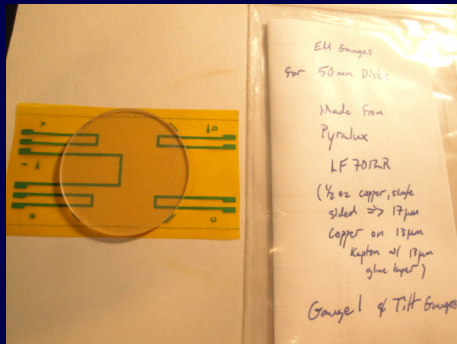 EM Gauges
for 50mm Disks
Made from
Pyralux
LF7012R
(½ oz copper, single
sided => 17μm
Copper on 13μm
Kapton w/ 13μm
glue layer)
Gauge 1 & Tilt Gauges
A
D
1
B
C